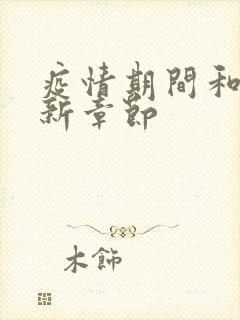 疫情期間和
新章節
木飾